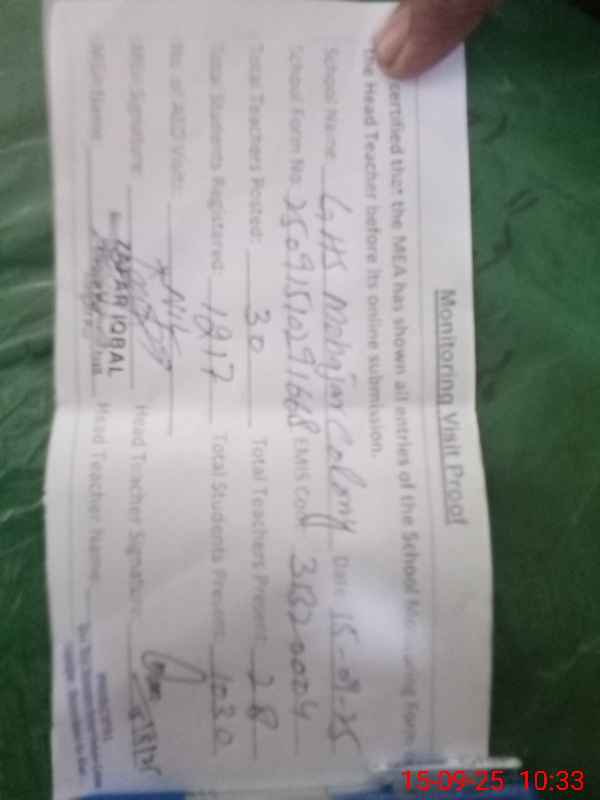 Monitoring Visit Proof
certified that the MEA has shown all entries of the School Monitoring Form
the Head Teacher before its online submission.
School Name GHS Mohajar Colony Date 15-09-25
School Form No. EMIS Code 31320004
Total Teachers Posted: 30 Total Teachers Present: 28
Total Students Registered: 1217 Total Students Present: 1030
No. of AEO Visit: Nil
MEA Signature: Head Teacher Signature:
ZAFAR IQBAL
MEA Name: Head Teacher Name:
15-09-25 10:33